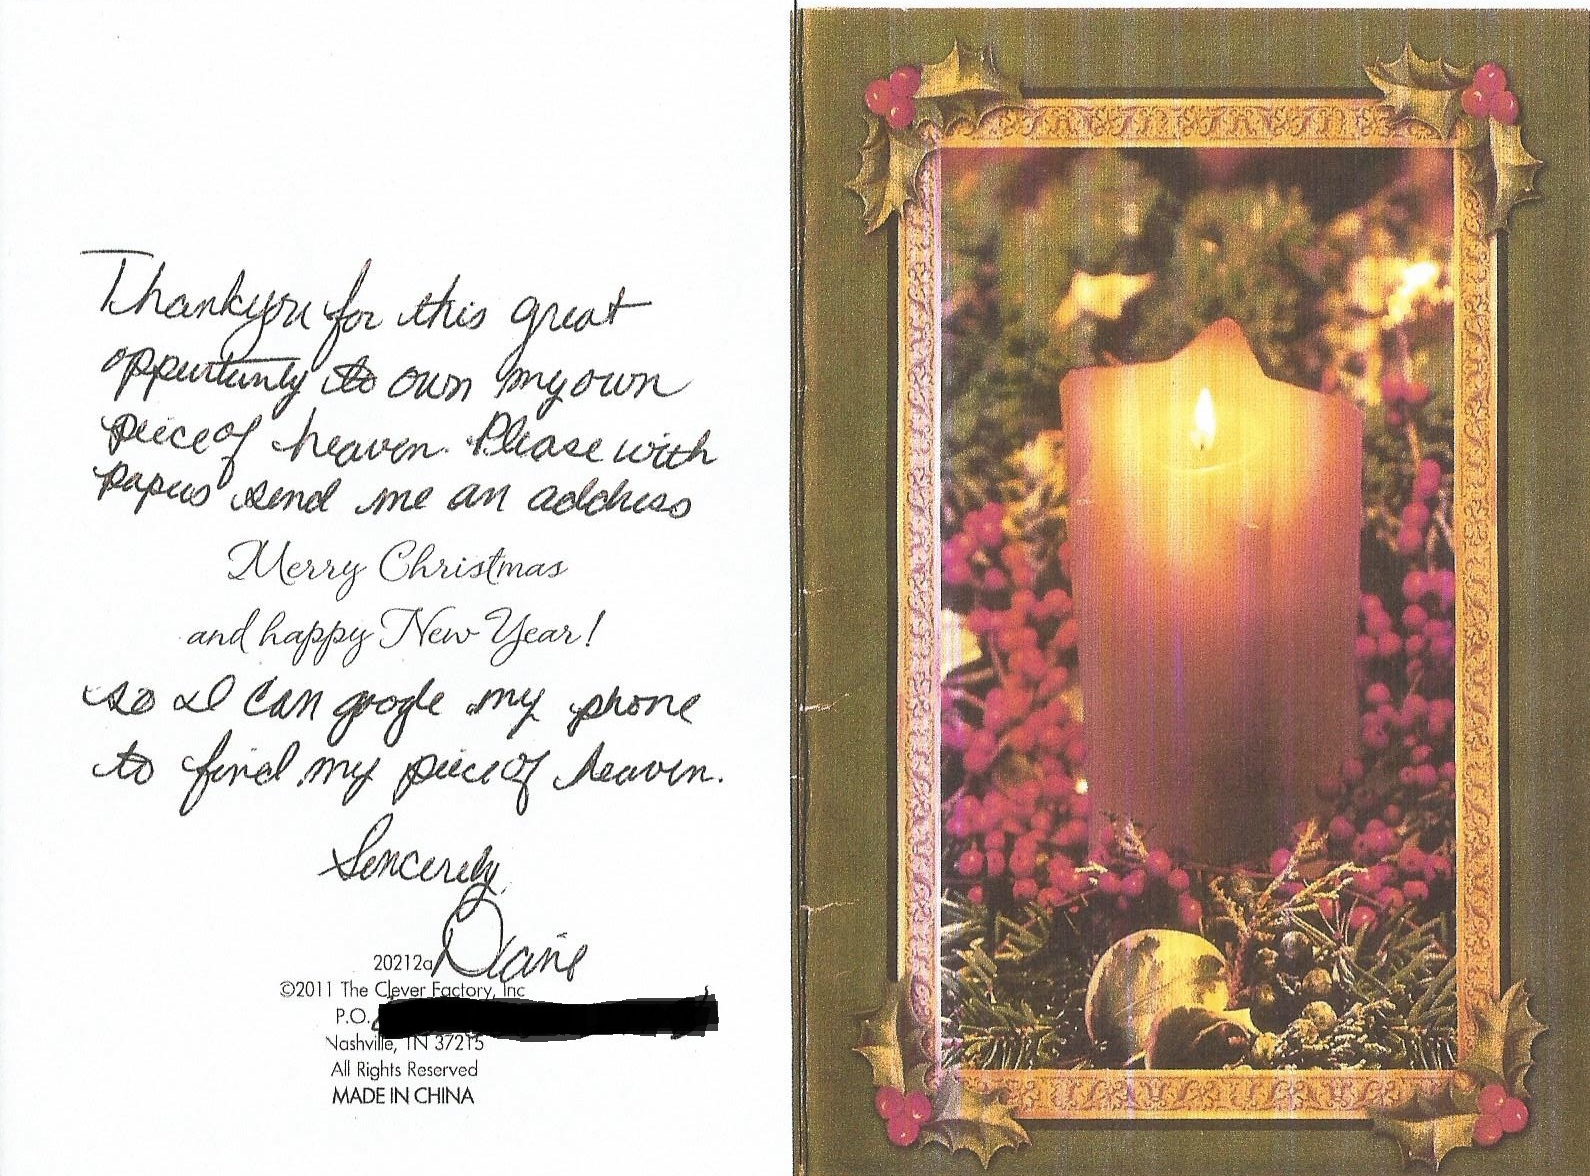 Thankyou for this great
oppurtunty to own my own
piece of heaven. Please with
papers send me an address
Merry Christmas
and happy New Year!
so I can google my phone
to find my piece of heaven.
Sincerely,
Diane
20212a
©2011 The Clever Factory, Inc
P.O.
Nashville, TN 37215
All Rights Reserved
MADE IN CHINA